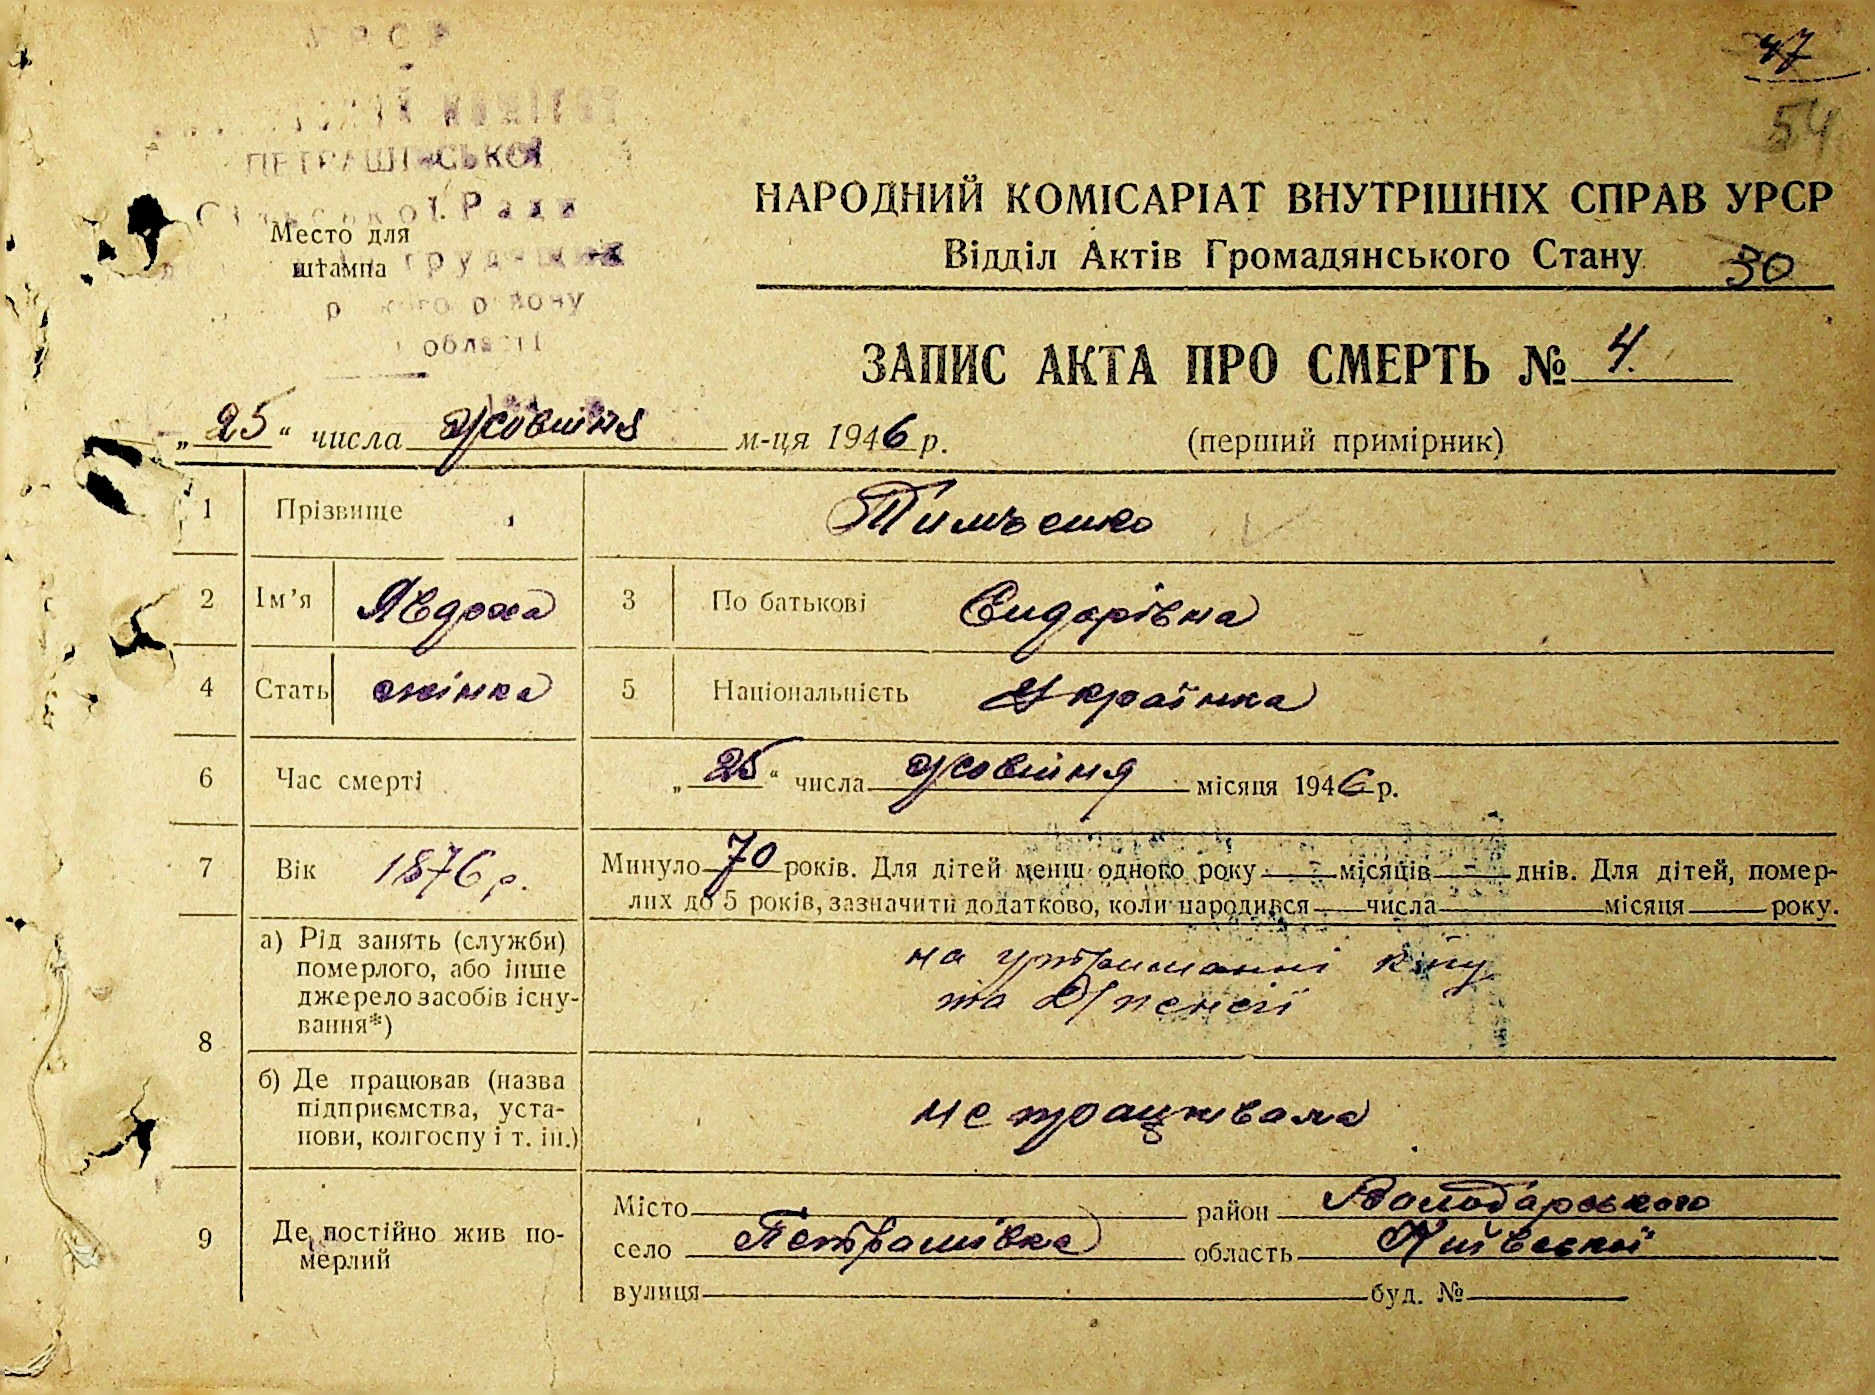 УРСР
ПЕТРАШІВСЬКОЇ
Сільської Ради
району
області
Место для
штампа
47
54
НАРОДНИЙ КОМІСАРІАТ ВНУТРІШНІХ СПРАВ УРСР
Відділ Актів Громадянського Стану
30
ЗАПИС АКТА ПРО СМЕРТЬ № 4.
„25“ числа жовтня м-ця 1946 р.
(перший примірник)
1 Прізвище Тимченко
2 Ім’я Явдоха 3 По батькові Сидорівна
4 Стать жінка 5 Національність Українка
6 Час смерті „25“ числа жовтня місяця 1946 р.
7 Вік 1876 р. Минуло 70 років. Для дітей менш одного року - місяців - днів. Для дітей, помер-
лих до 5 років, зазначити додатково, коли народився числа місяця року.
8 а) Рід занять (служби)
померлого, або інше
джерело засобів існу-
вання*)
на утриманні
та пенсії
б) Де працював (назва
підприємства, уста-
нови, колгоспу і т. ін.)
не працювала
9 Де постійно жив по-
мерлий
Місто район Володарського
село Петрашівка область Київської
вулиця буд. №